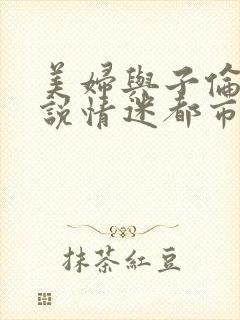 美婦與子倫
說情迷都市
抹茶紅豆